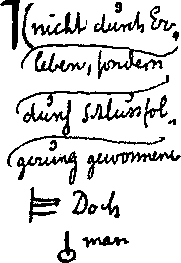 (nicht durch Er-
leben, sondern
durch Schlussfol-
gerung gewonnene
Doch
man